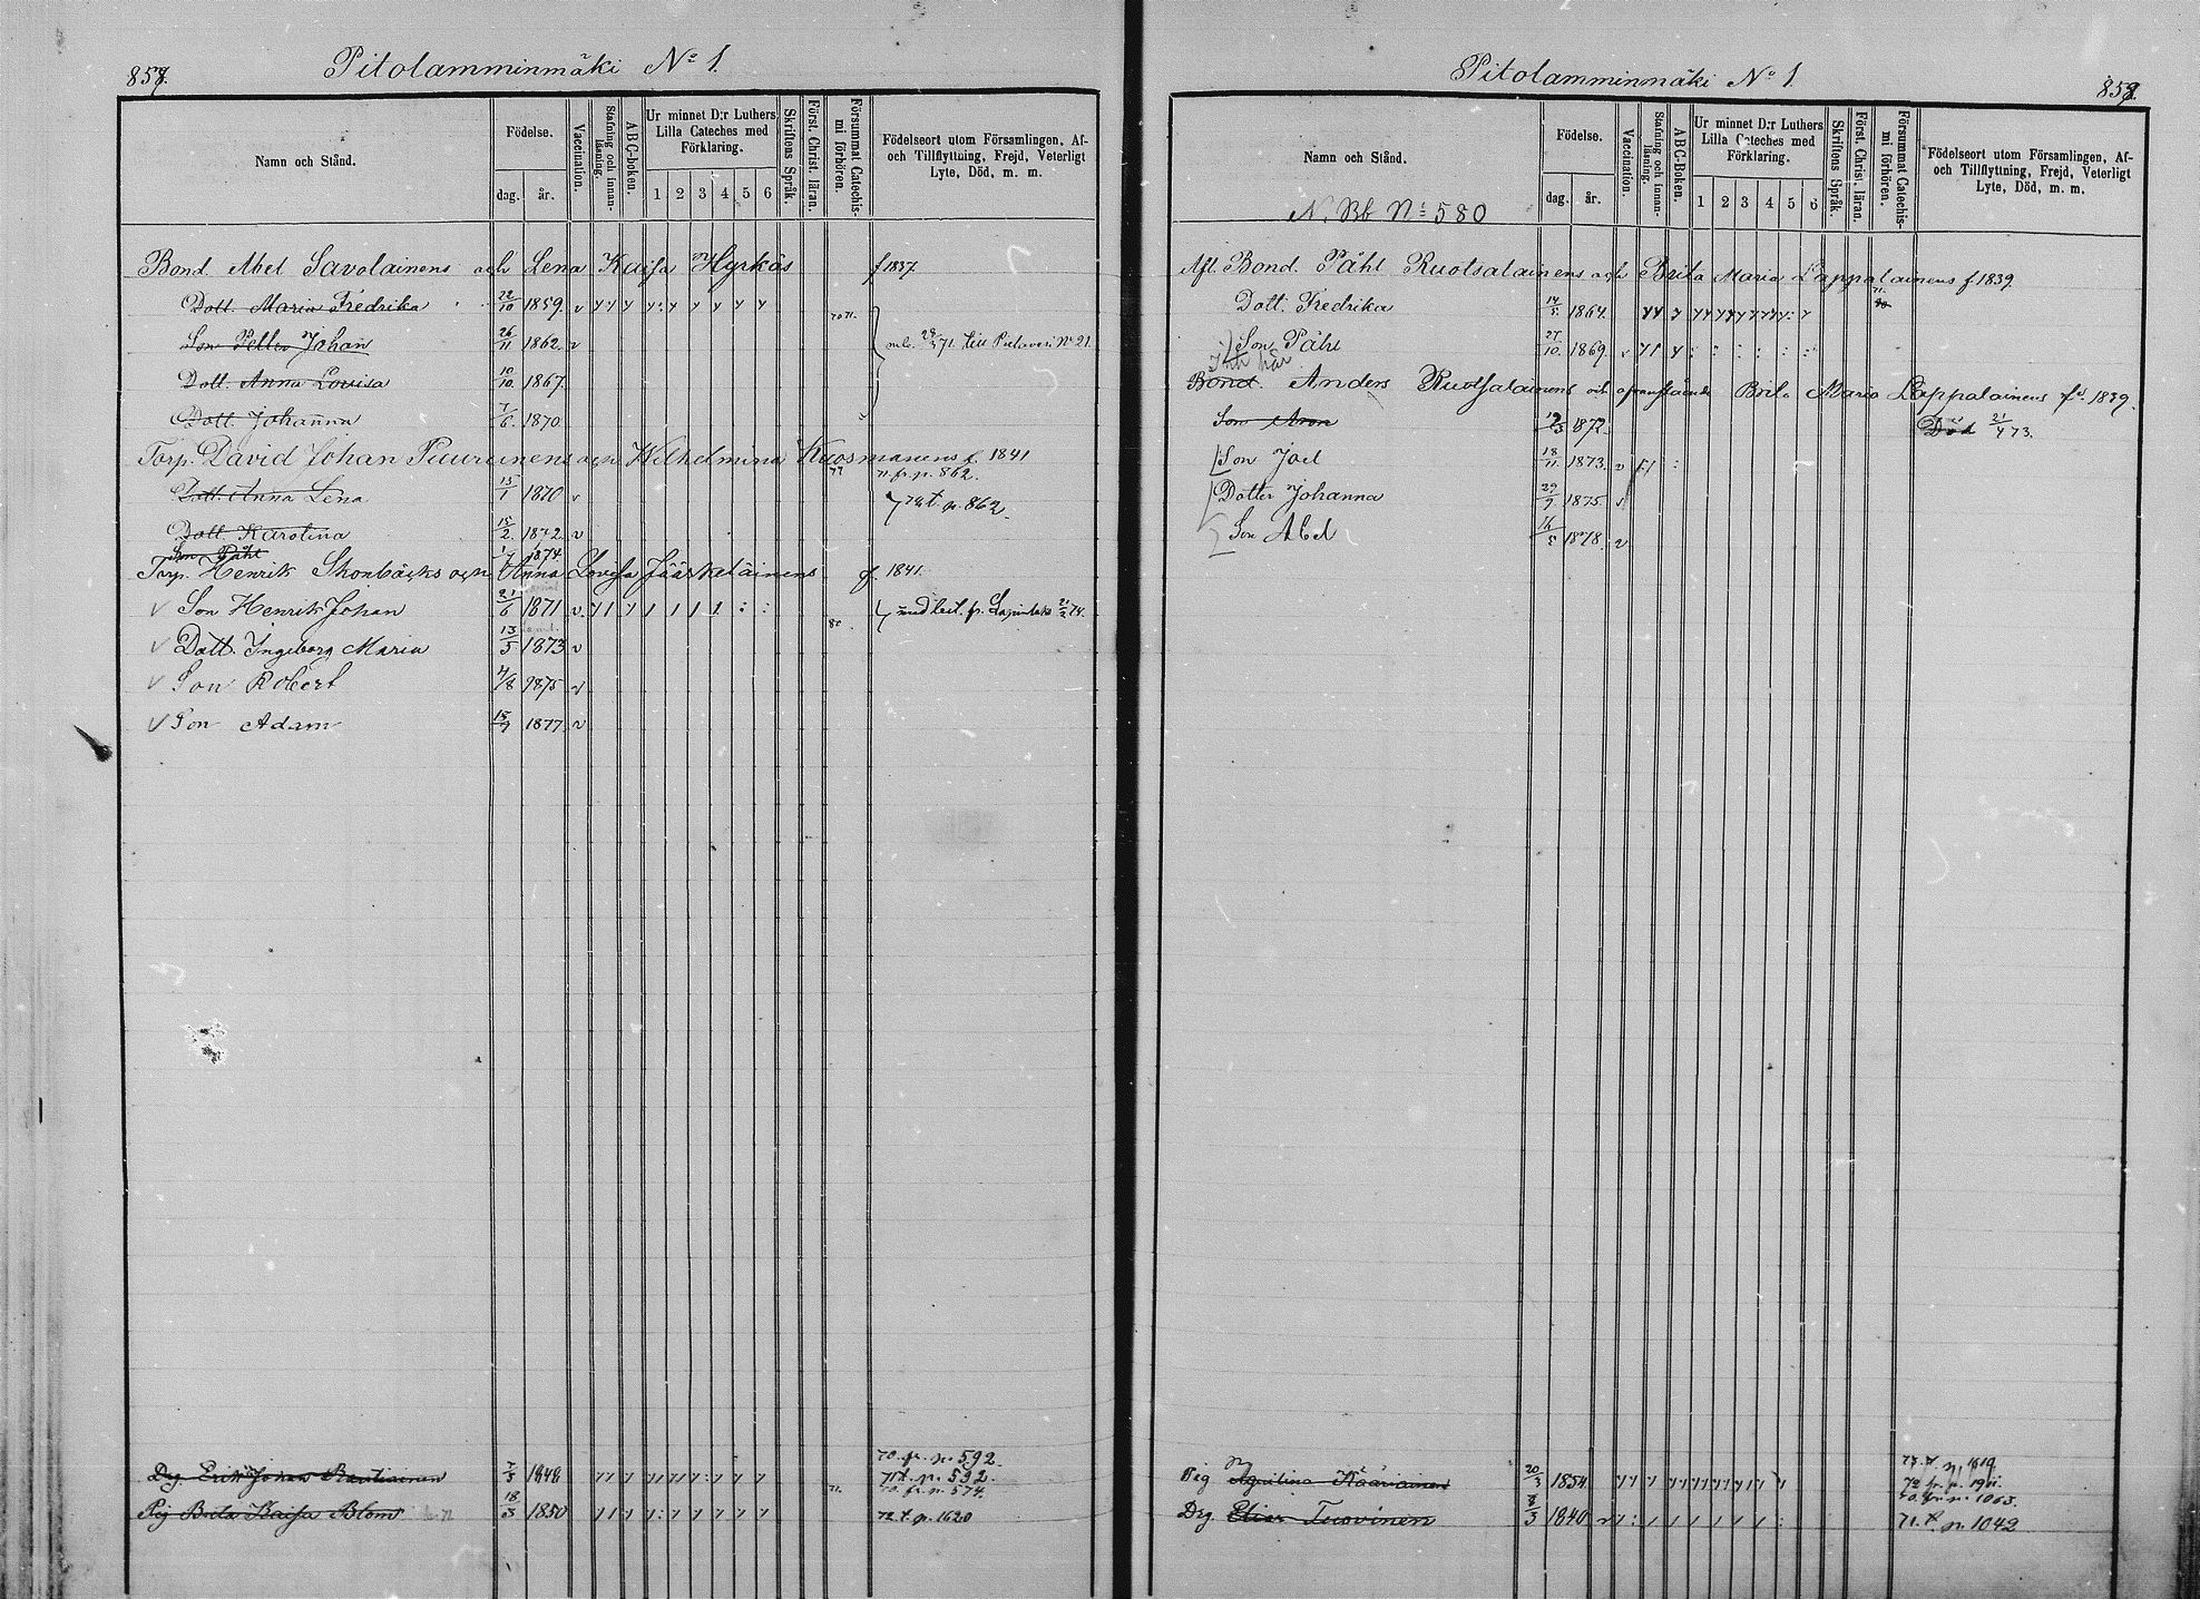 857.
Pitolamminmäki No 1.
Namn och Stånd.
Födelse.
dag.
år.
Vaccination.
Stafning och innan-läsning.
ABC-boken.
Ur minnet D:r Luthers Lilla Cateches med Förklaring.
1 2 3 4 5 6
Skriftens Språk.
Först. Christ. läran.
Försummat Catechis-mi förhören.
Födelseort utom Församlingen, Af- och Tillflyttning, Frejd, Veterligt Lyte, Död, m. m.
Bond. Abel Savolainens och Lena Kaisa Hyrkäs f 1837.
Dott. Maria Fredrika 22/10 1859. v 70 71.
Son Petter Johan 26/11 1862. v 71. till Pielavesi No 21.
Dott. Anna Lovisa 10/10. 1867.
Dott. Johanna 7/6. 1870
Torp. David Johan Piurainens och Wilhelmina Kuosmanens f. 1841
71. fr. p. 862.
Dott. Anna Lena 15/1 1870 v t. p. 862.
Dott. Karolina 15/2. 1872. v
Son Påhl 1/7 1874.
Torp. Henrik Skonbäcks och Anna Lovisa Jääskeläinens f. 1841.
Son Henrik Johan 21/6 1871 v. med bet. fr.
Dott. Ingeborg Maria 13/5 1873 v
Son Robert 4/8 1875 v
Son Adam 15/9 1877. v
70. fr. p. 592.
Drg. Erik Johan Rautiainen 7/5 1848 71 t. p. 592.
70. fr. p. 574.
Pig Brita Kaisa Blom 18/5 1850 71. 72 t. p. 1620
Pitolamminmäki No 1
858.
Namn och Stånd.
N. Bb No 580
Födelse.
dag.
år.
Vaccination.
Stafning och innan-läsning.
ABC-boken.
Ur minnet D:r Luthers Lilla Cateches med Förklaring.
1 2 3 4 5 6
Skriftens Språk.
Först. Christ. läran.
Försummat Catechis-mi förhören.
Födelseort utom Församlingen, Af- och Tillflyttning, Frejd, Veterligt Lyte, Död, m. m.
Afl. Bond. Påhl Ruotsalainens och Brita Maria Lappalainens f. 1839.
Dott. Fredrika 14/5 1864. 71.
Son Påhl 27/10. 1869. v
Bond. Anders Ruotsalainens och ofvanstående Brita Maria Lappalainens f. 1839.
Son Aron 1872. Död 21/4 73.
Son Joel 18/11. 1873. v
Dotter Johanna 29/9. 1875. v
Son Abel 16/5 1878. v
Pig Agnilina Kääriäinen 20/3 1854 72 fr. p. 1911.
70. fr. p. 1063.
Drg Elias Tuovinen 8/3 1840 v 71. t. p. 1042